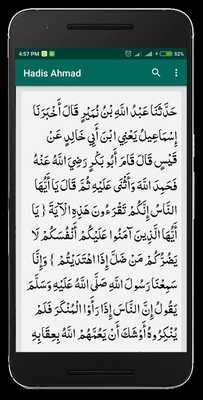 4:57 PM
52%
Hadis Ahmad
حَدَّثَنَا عَبْدُ اللَّهِ بْنُ نُمَيْرٍ قَالَ أَخْبَرَنَا
إِسْمَاعِيلُ يَعْنِي ابْنَ أَبِي خَالِدٍ عَنْ
قَيْسٍ قَالَ قَامَ أَبُو بَكْرٍ رَضِيَ اللَّهُ عَنْهُ
فَحَمِدَ اللَّهَ وَأَثْنَى عَلَيْهِ ثُمَّ قَالَ يَا أَيُّهَا
النَّاسُ إِنَّكُمْ تَقْرَءُونَ هَذِهِ الْآيَةَ { يَا
أَيُّهَا الَّذِينَ آمَنُوا عَلَيْكُمْ أَنْفُسَكُمْ لَا
يَضُرُّكُمْ مَنْ ضَلَّ إِذَا اهْتَدَيْتُمْ } وَإِنَّا
سَمِعْنَا رَسُولَ اللَّهِ صَلَّى اللَّهُ عَلَيْهِ وَسَلَّمَ
يَقُولُ إِنَّ النَّاسَ إِذَا رَأَوْا الْمُنْكَرَ فَلَمْ
يُنْكِرُوهُ أَوْشَكَ أَنْ يَعُمَّهُمْ اللَّهُ بِعِقَابِهِ